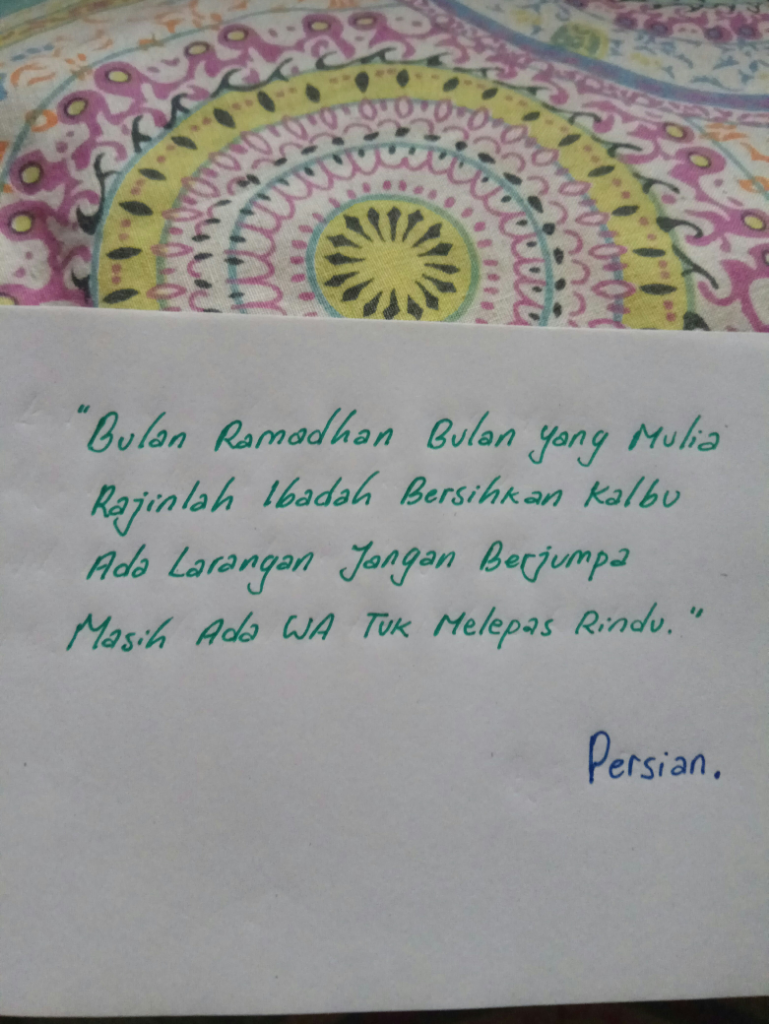 "Bulan Ramadhan Bulan yang Mulia
Rajinlah Ibadah Bersihkan Kalbu
Ada Larangan Jangan Berjumpa
Masih Ada WA Tuk Melepas Rindu."
Persian.